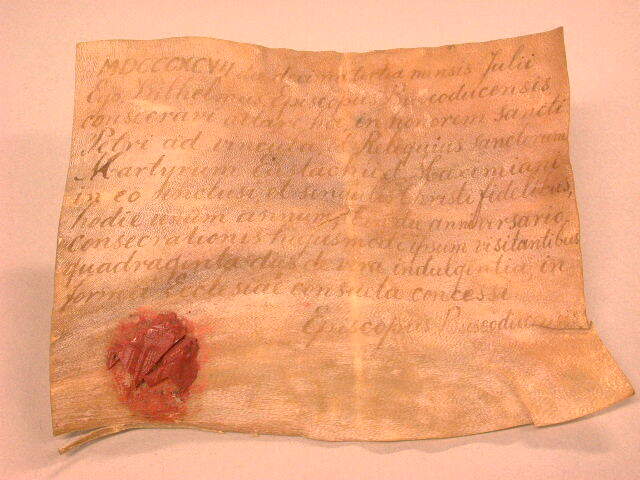 MDCCCXCVII die decima tertia mensis Julii
Ego Wilhelmus Episcopus Buscoducensis
consecravi altare hoc in honorem Sancti
Petri ad vincula & Reliquias sanctorum
Martyrum Eustachii et Maximiani
in eo inclusi, et singulis Christi fidelibus,
hodie unum annum, & die anniversario
consecrationis hujusmodi ipsum visitantibus
quadraginta dies de vera indulgentia, in
forma Ecclesiae consueta concessi
Episcopus Buscoducensis